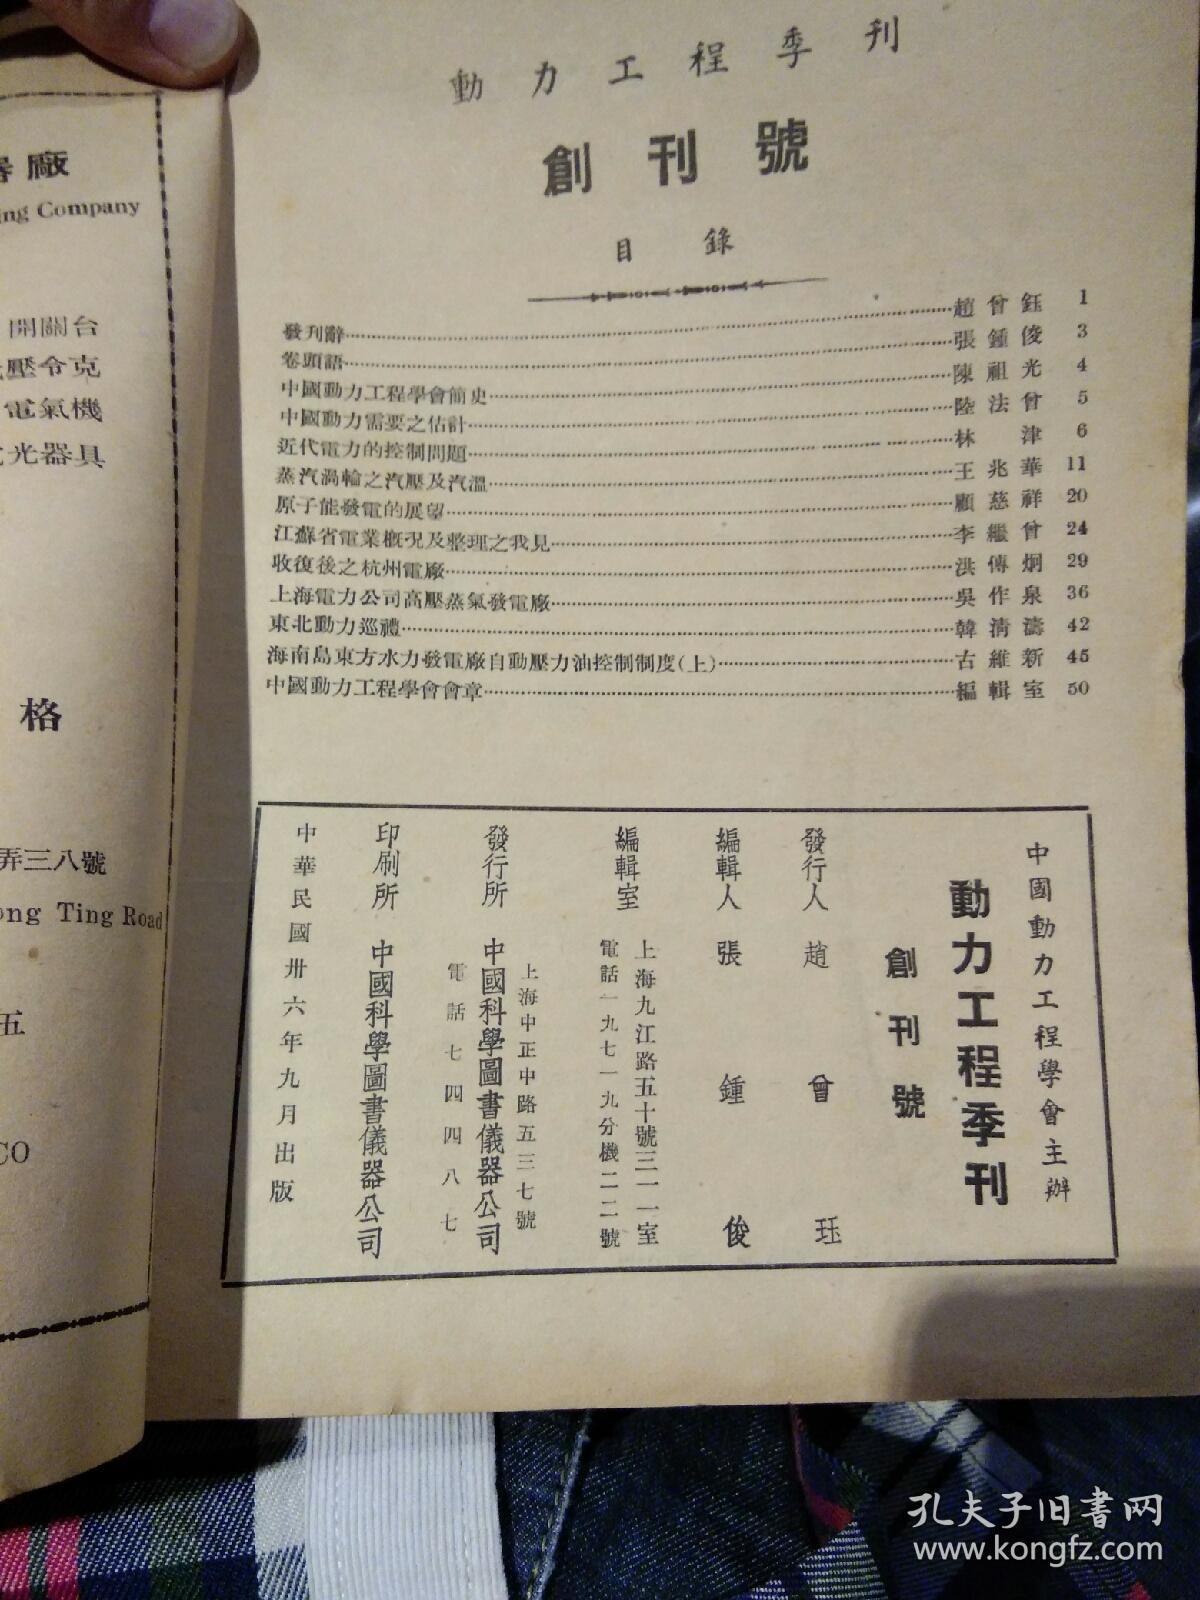 動力工程季刊
創刊號
目錄
發刊辭 趙曾鈺 1
卷頭語 張鍾俊 3
中國動力工程學會簡史 陳祖光 4
中國動力需要之估計 陸法曾 5
近代電力的控制問題 林津 6
蒸汽渦輪之汽壓及汽溫 王兆華 11
原子能發電的展望 顧慈祥 20
江蘇省電業概況及整理之我見 李繼曾 24
收復後之杭州電廠 洪傳炯 29
上海電力公司高壓蒸氣發電廠 吳作泉 36
東北動力巡禮 韓清濤 42
海南島東方水力發電廠自動壓力油控制制度(上) 古維新 45
中國動力工程學會會章 編輯室 50
中國動力工程學會主辦
動力工程季刊
創刊號
發行人 趙曾珏
編輯人 張鍾俊
編輯室 上海九江路五十號三一一室
電話一九七一九分機二二號
發行所 中國科學圖書儀器公司
上海中正中路五三七號
電話七四四八七
印刷所 中國科學圖書儀器公司
中華民國卅六年九月出版
器廠
ing Company
開關台
壓令克
電氣機
光器具
格
弄三八號
ong Ting Road
五
CO
孔夫子旧書网
www.kongfz.com